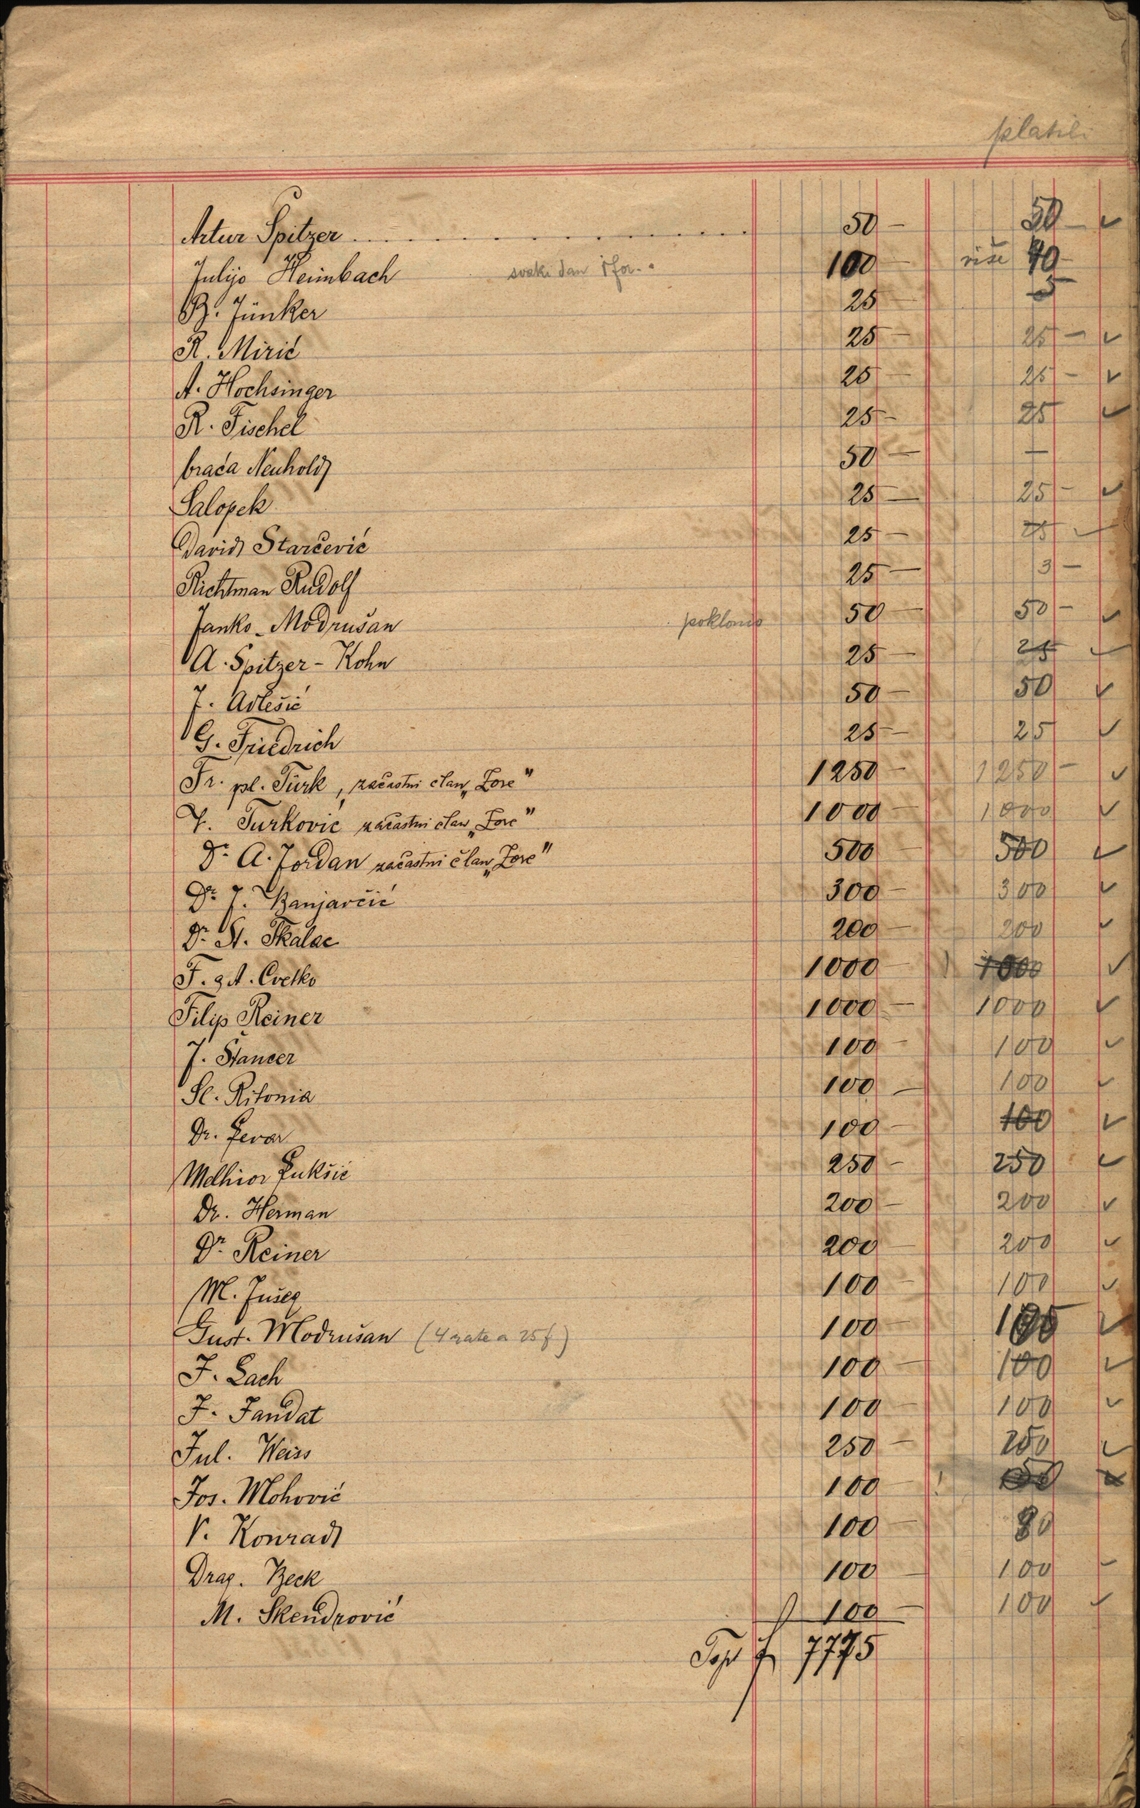 platili
Artur Spitzer .................... 50 — 50 — ✓
Julijo Heimbach svaki dan 100 — više 40 —
B. Jünker 25 — 5
R. Mirić 25 — 25 — ✓
A. Hochsinger 25 — 25 — ✓
R. Fischel 25 — 25 ✓
braća Neuhold 50 — —
Salopek 25 — 25 — ✓
David Starčević 25 — 25 ✓
Richtman Rudolf 25 — 3 —
Janko Modrušan poklonio 50 — 50 — ✓
A. Spitzer - Kohn 25 — 25 ✓
J. Avlešić 50 — 50 ✓
G. Friedrich 25 — 25 ✓
Fr. pl. Türk, začastni član „Zore" 1250 — 1250 — ✓
V. Turković začastni član „Zore" 1000 — 1000 ✓
Dr. A. Jordan začastni član „Zore" 500 — 500 ✓
Dr. J. Banjavčić 300 — 300 ✓
Dr. St. Tkalac 200 — 200 ✓
F. g A. Cvetko 1000 — 1000 ✓
Filip Reiner 1000 — 1000 ✓
J. Štancer 100 — 100 ✓
Sl. Ritonia 100 — 100 ✓
Dr. Levar 100 — 100 ✓
Melhior Lukšić 250 — 250 ✓
Dr. Herman 200 — 200 ✓
Dr. Reiner 200 — 200 ✓
M. Jušeg 100 — 100 ✓
Gust. Modrušan (4 rate a 25 f) 100 — ✓
F. Lach 100 — 100 ✓
F. Fandat 100 — 100 ✓
Jul. Weiss 250 — 250 ✓
Jos. Mohović 100 — !
V. Konrad 100 — 80
Drag. Beck 100 — 100 ✓
M. Skendrović 100 — 100 ✓
f 7775